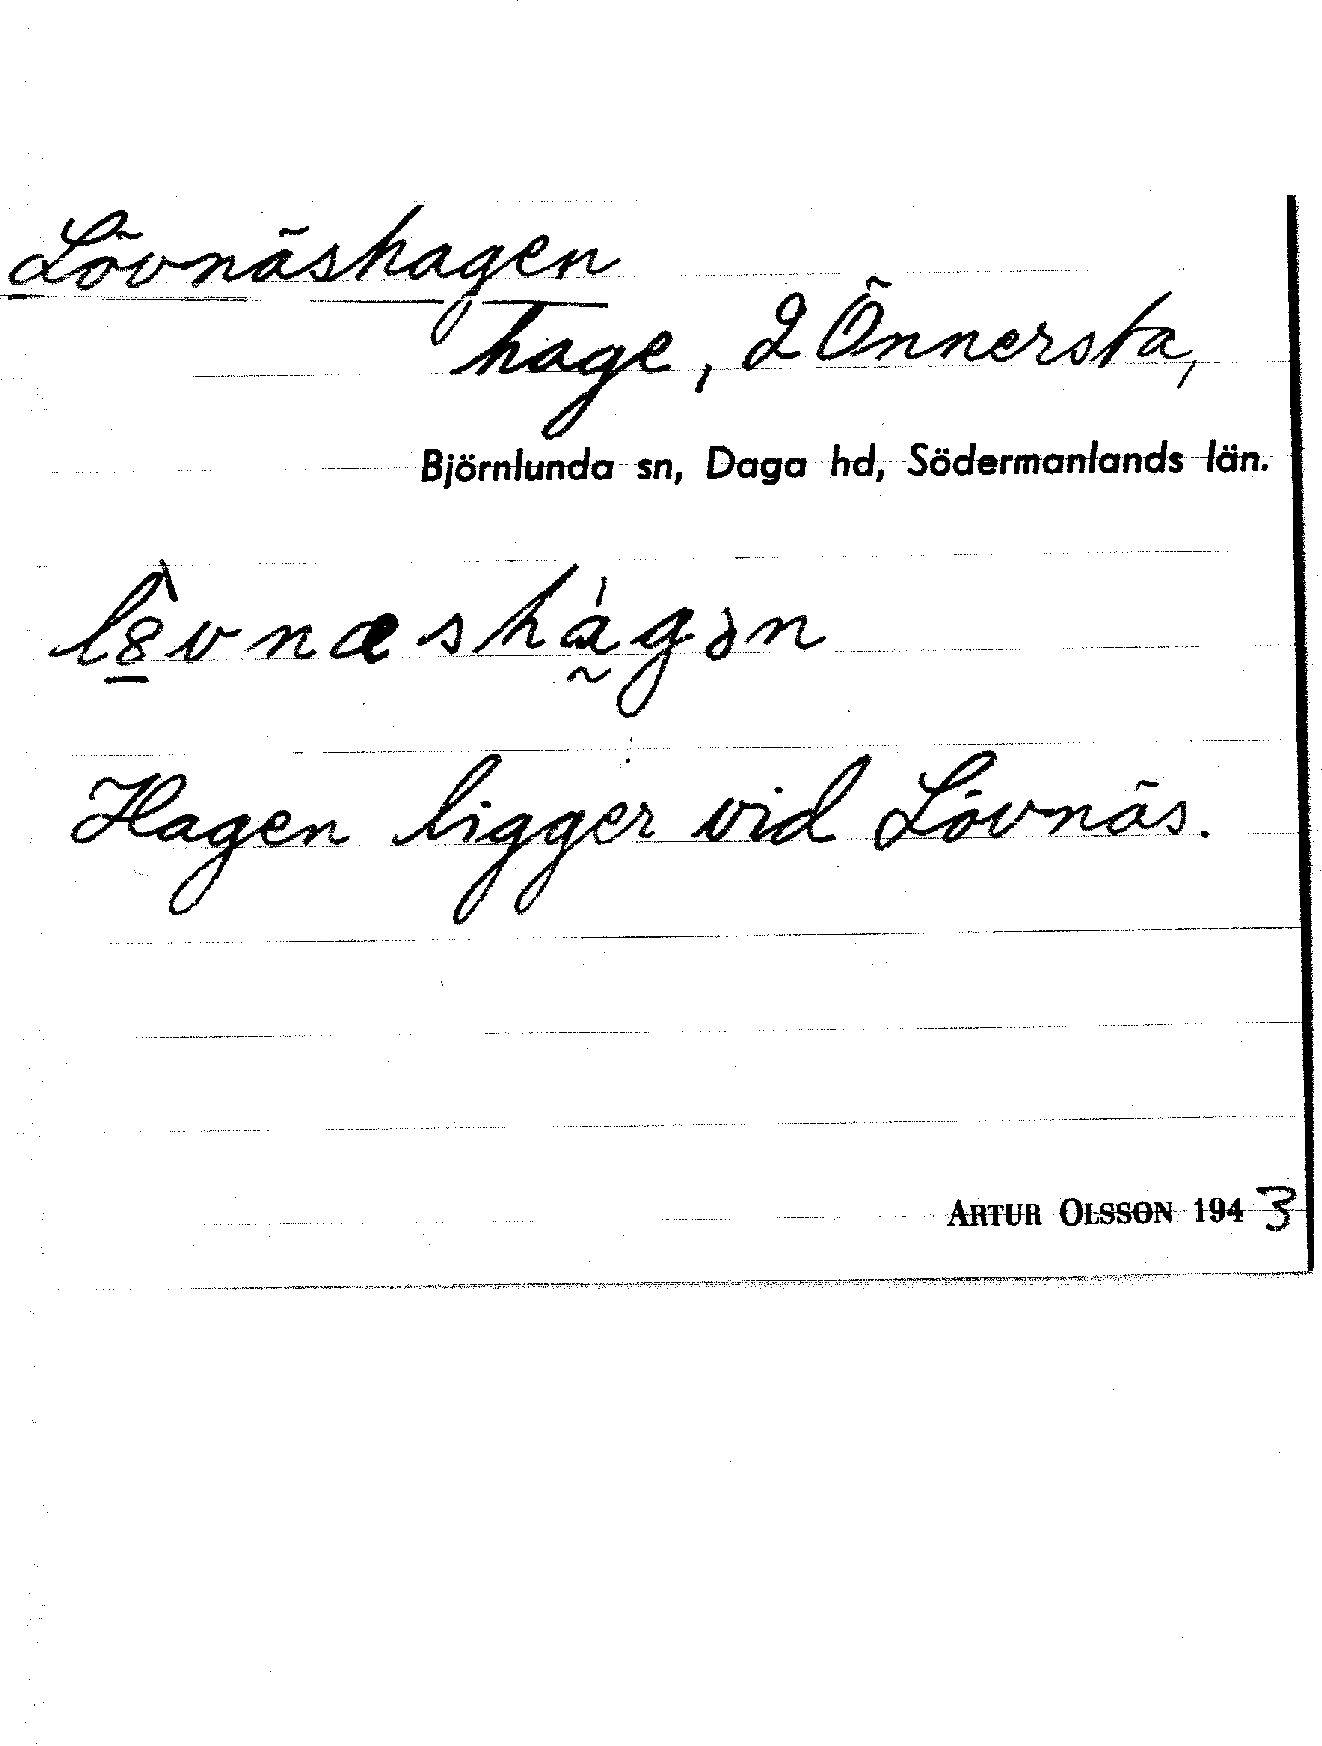 Lövnäshagen
hage, 2 Önnersta,
Björnlunda sn, Daga hd, Södermanlands län.
l8̲̀vnæshà̰gən
Hagen ligger vid Lövnäs.
ARTUR OLSSON 1943